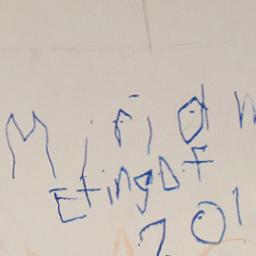 Miriam
Etingof
201